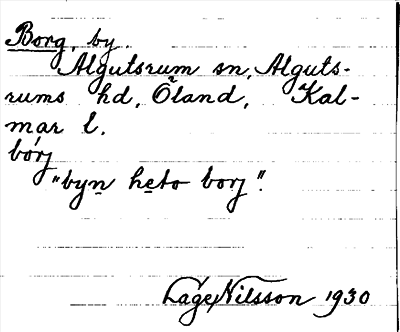 Borg, by.
Algutsrum sn, Alguts-
rums hd, Öland, Kal-
mar l.
bórj
"byn heto borj".
Lage Nilsson 1930